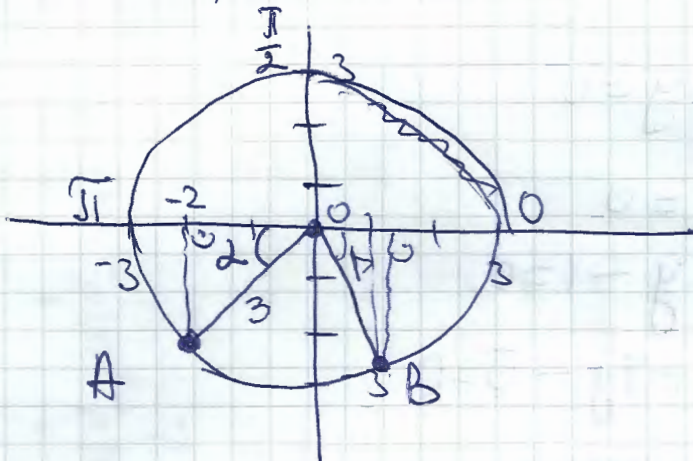 π
2
3
π
-2
0
0
-3
3
3
A
B